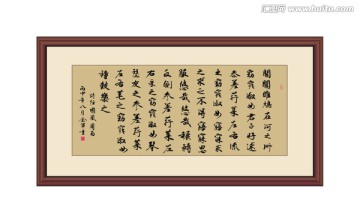 關關雎鳩在河之洲
窈窕淑女君子好逑
參差荇菜左右流
之窈窕淑女寤寐求
之求之不得寤寐思
服悠哉悠哉輾轉
反側參差荇菜左
右采之窈窕淑女琴
瑟友之參差荇菜
左右芼之窈窕淑女
鐘鼓樂之
詩經國風周南
丙申年八月
www.huitu.com